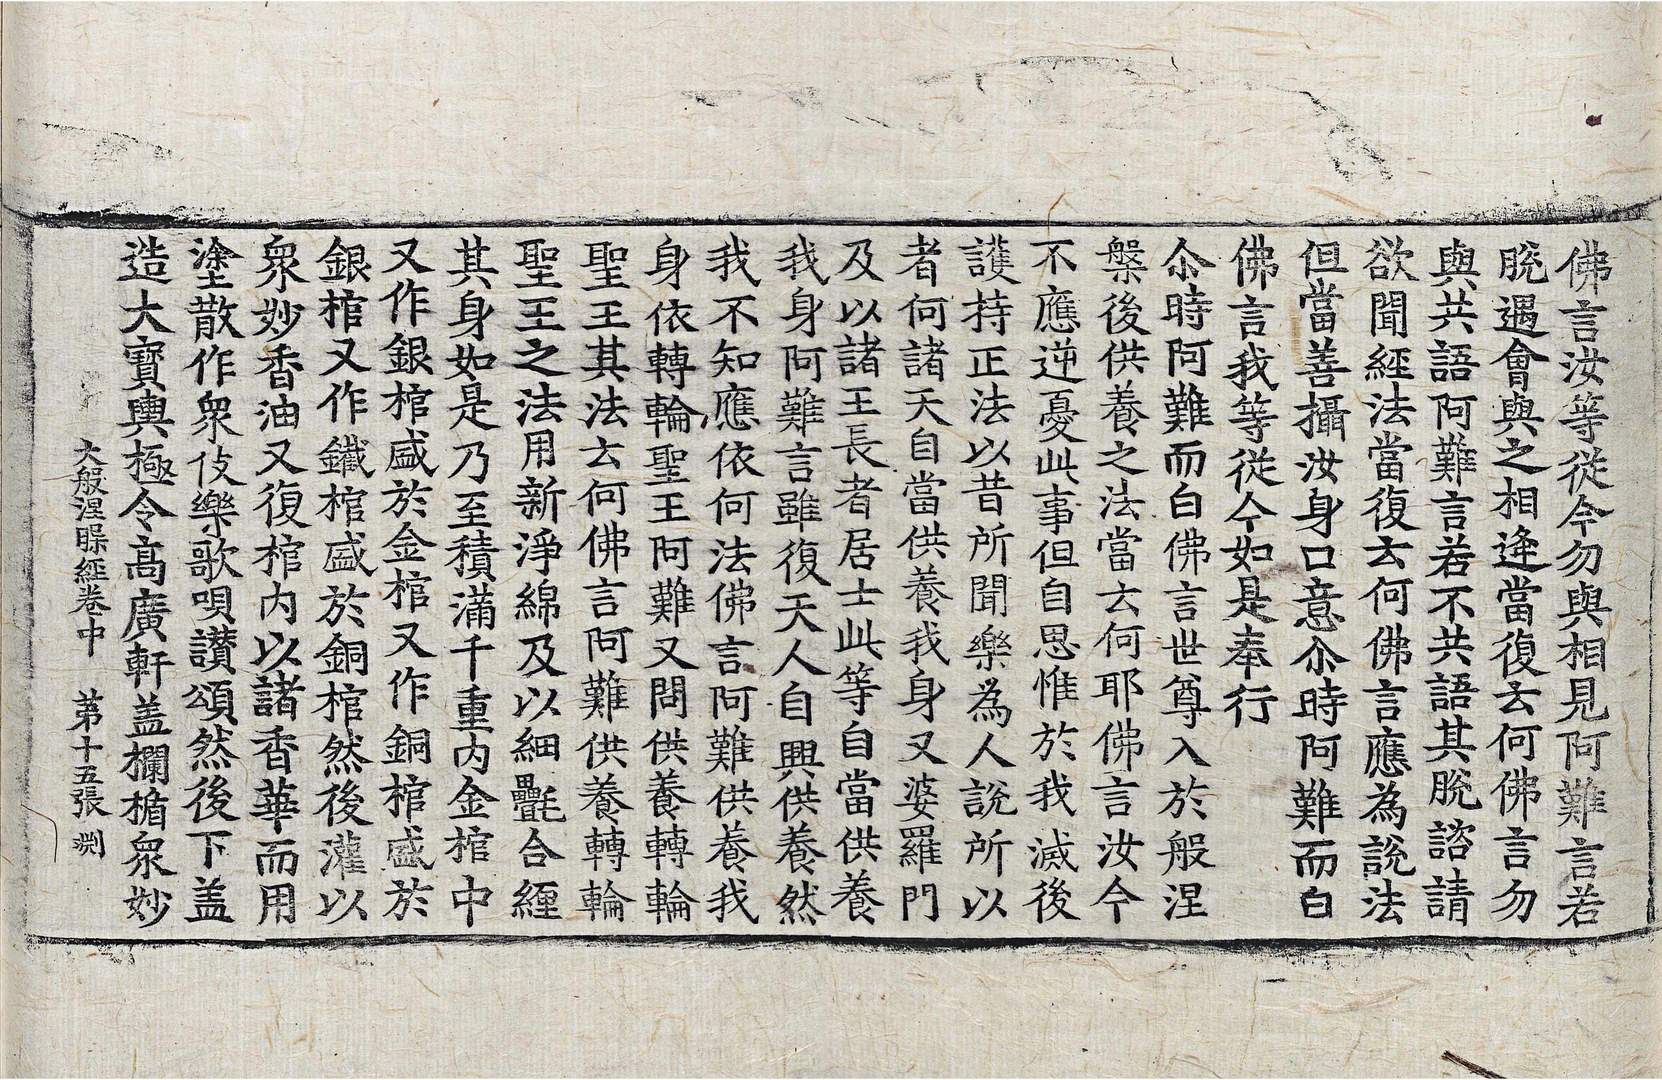 佛言汝等從今勿與相見阿難言若
脫遇會與之相逢當復云何佛言勿
與共語阿難言若不共語其脫諮請
欲聞經法當復云何佛言應為說法
但當善攝汝身口意尒時阿難而白
佛言我等從今如是奉行
尒時阿難而白佛言世尊入於般涅
槃後供養之法當云何耶佛言汝今
不應逆憂此事但自思惟於我滅後
護持正法以昔所聞樂為人說所以
者何諸天自當供養我身又婆羅門
及以諸王長者居士此等自當供養
我身阿難言雖復天人自興供養然
我不知應依何法佛言阿難供養我
身依轉輪聖王阿難又問供養轉輪
聖王其法云何佛言阿難供養轉輪
聖王之法用新淨綿及以細㲲合纏
其身如是乃至積滿千重內金棺中
又作銀棺盛於金棺又作銅棺盛於
銀棺又作鐵棺盛於銅棺然後灌以
衆妙香油又復棺內以諸香華而用
塗散作衆伎樂歌唄讚頌然後下盖
造大寶輿極令高廣軒盖欄楯衆妙
大般涅槃經卷中 第十五張 渊